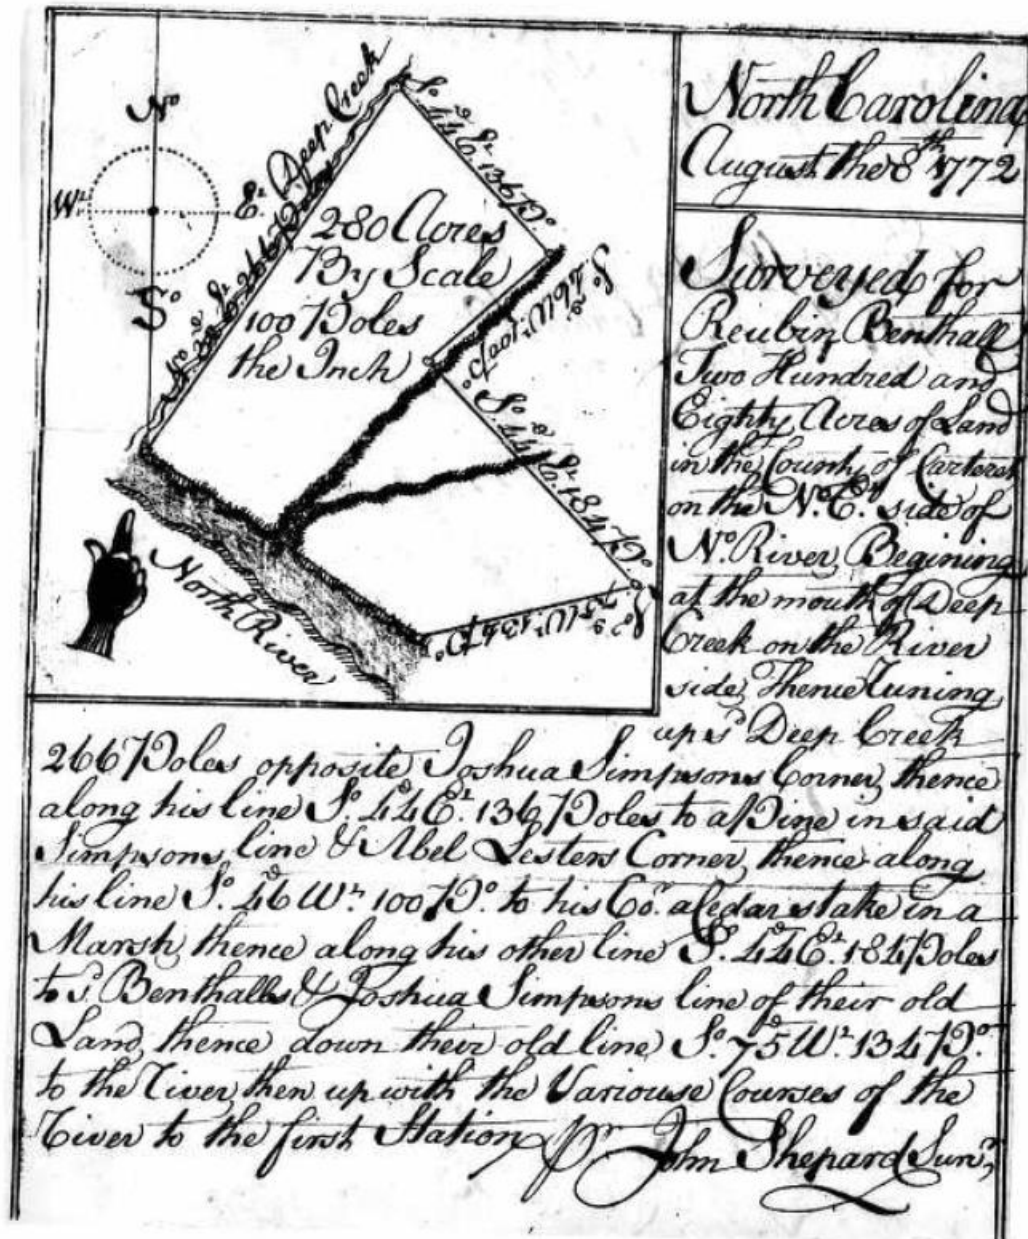 No
W.t
E.t
So
Deep Creek
No 38 E.t 266 Poles
So 44d E.t 136 Po
So 46d W.t 100 Po
So 44d E.t 184 Po
So 75d W.t 134 Po
280 Acres
By Scale
100 Poles
the Inch
North
River
North Carolina
August the 8th 1772
Surveyed for
Reubin Benthall
Two Hundred and
Eighty Acres of Land
in the County of Carteret
on the No. E.t side of
No. River, Begining
at the mouth of Deep
Creek on the River
side, Thence Runing
up sd Deep Creek
266 Poles opposite Joshua Simpsons Corner, thence
along his line So. 44d E.t 136 Poles to a Pine in said
Simpsons line & Abel Lesters Corner, thence along
his line So. 46d W.t 100 Po. to his Cor. a Cedar stake in a
Marsh, thence along his other line So. 44d E.t 184 Poles
to sd Benthalls & Joshua Simpsons line of their old
Land, thence down their old line So. 75d W.t 134 Po.
to the River, then up with the Variouse Courses of the
River to the first Station
Pr John Shepard Survr